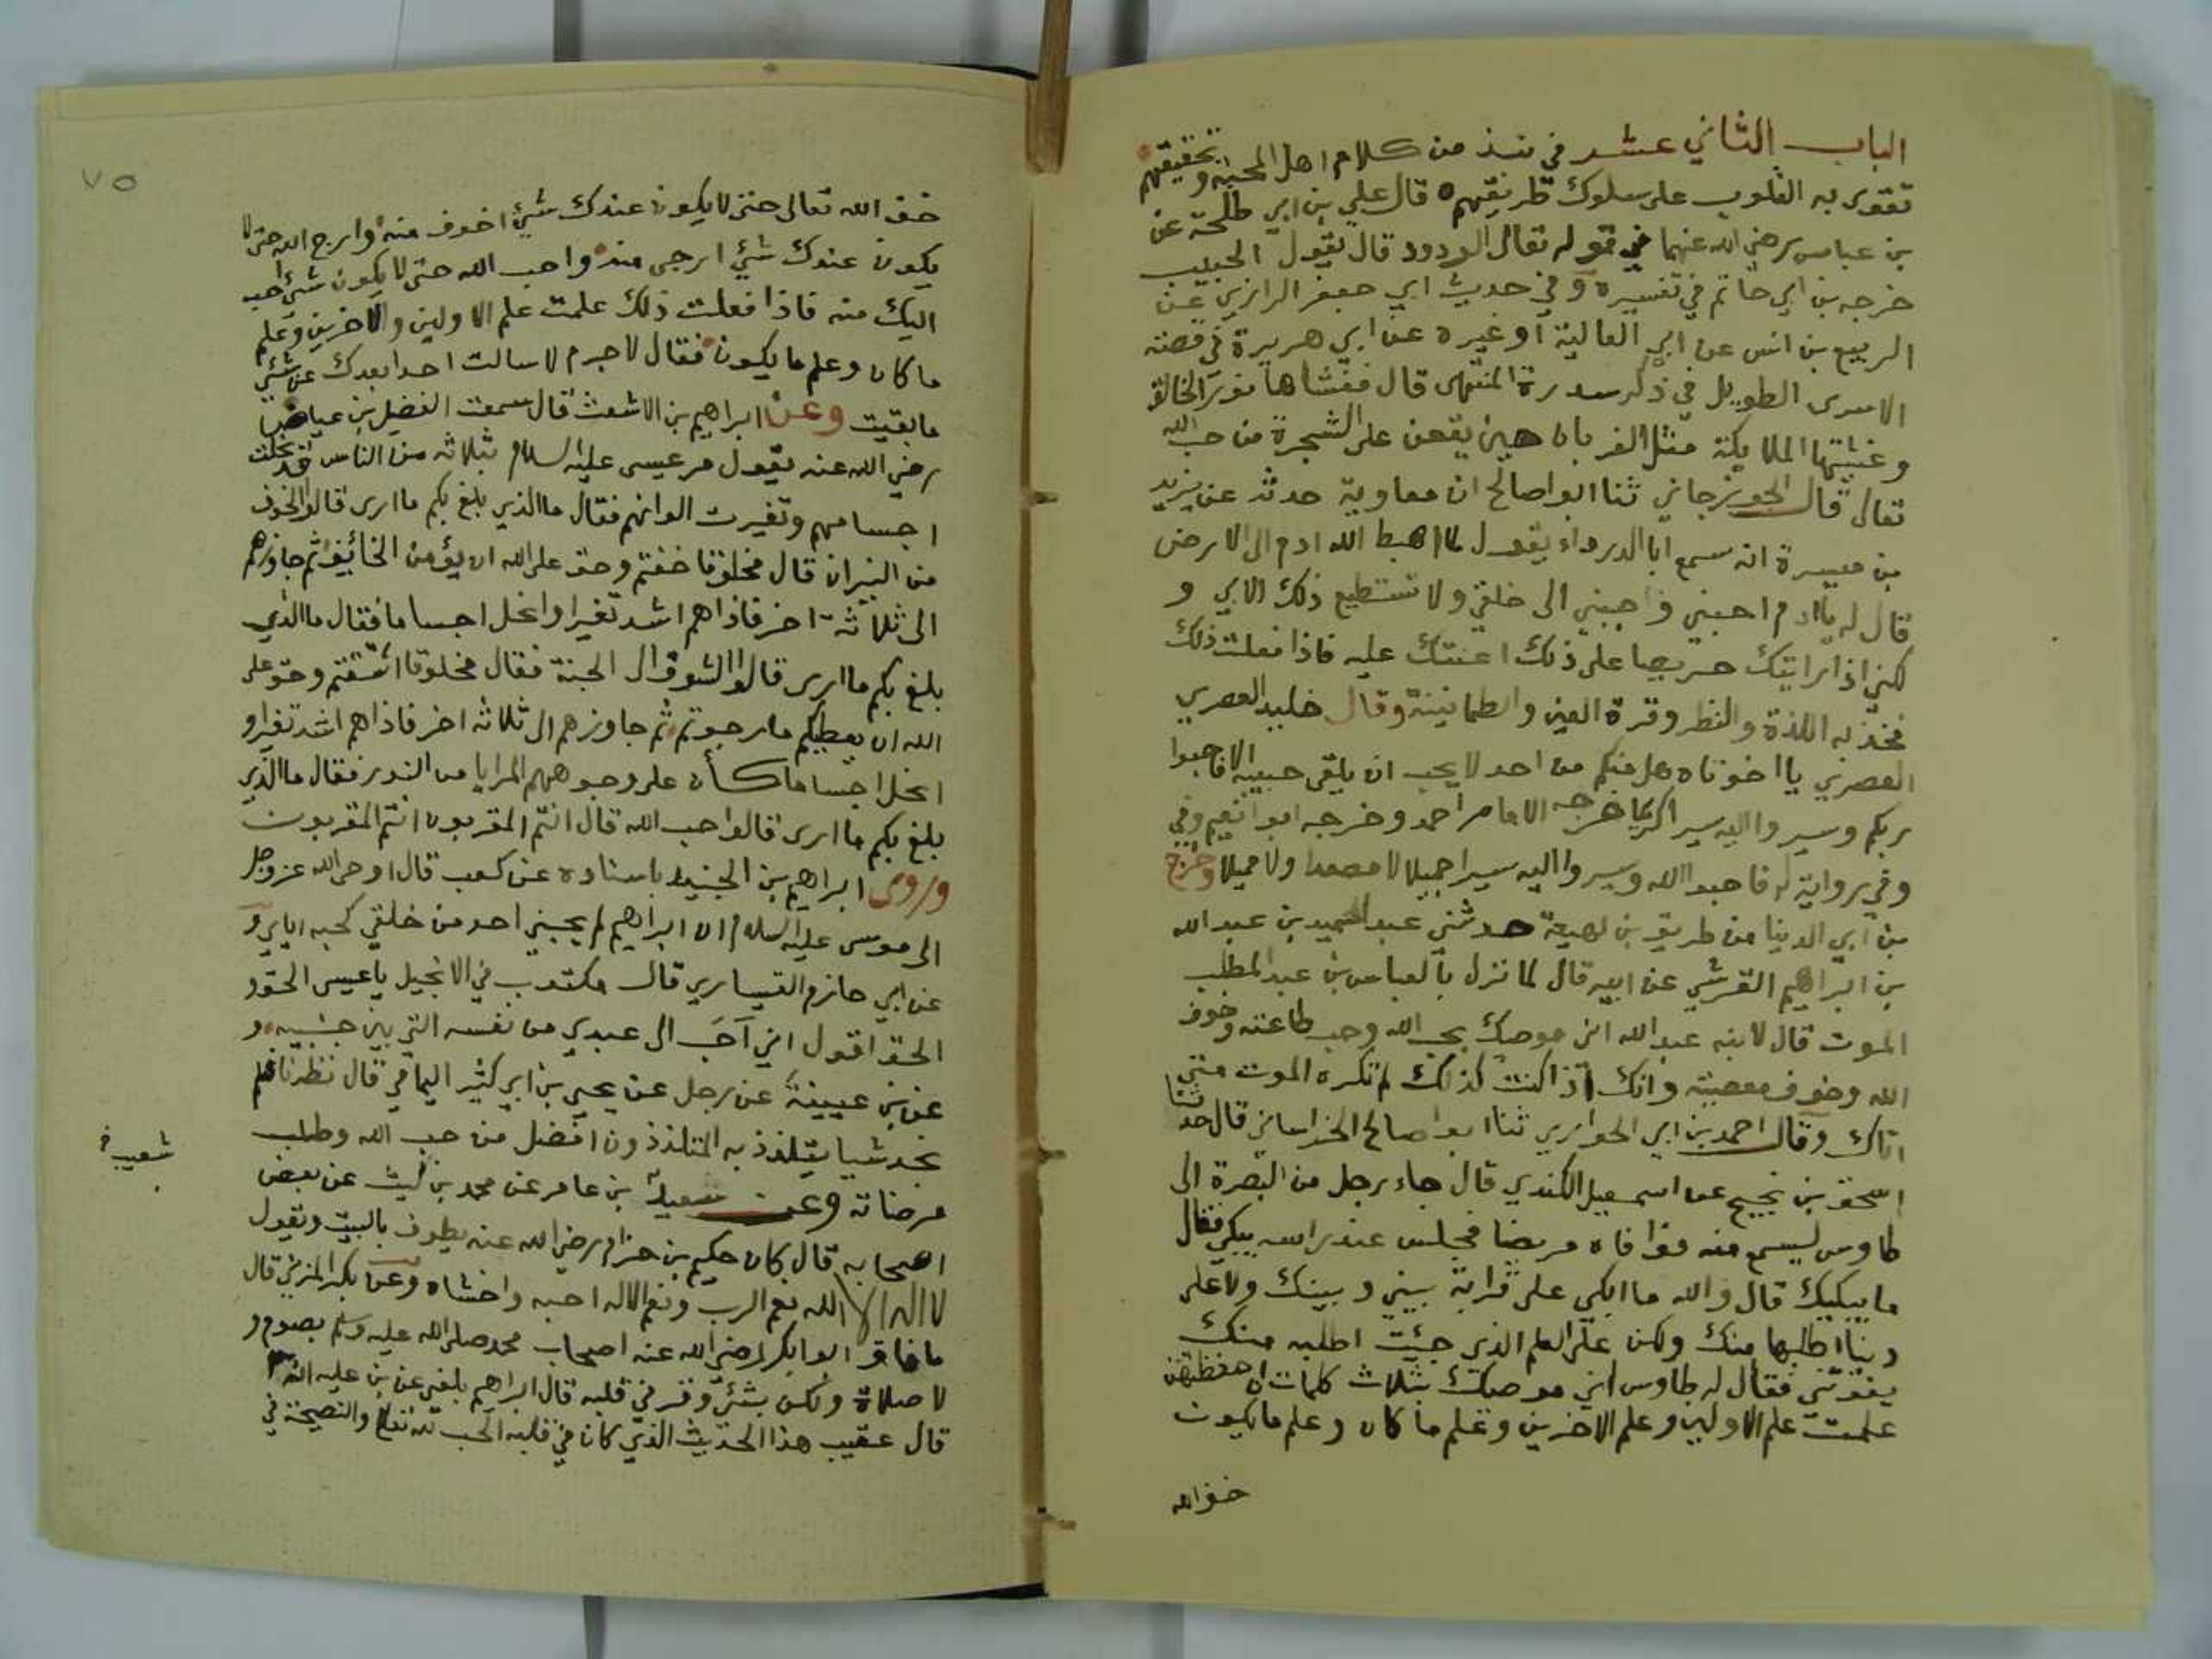 الباب الثاني عشر في نبذ من كلام اهل المحبة وتحقيقهم
تقوى به القلوب على سلوك طريقهم قال علي بن ابي طلحة عن
بن عباس رضي الله عنهما في قوله تعالى الودود قال يقول الحبيب
خرجه بن ابي حاتم في تفسيره وفي حديث ابي جعفر الرازي عن
الربيع بن انس عن ابي العالية او غيره عن ابي هريرة في قصة
الاسرى الطويل في ذكر سدرة المنتهى قال فغشاها نور الخالق
وغشيتها الملايكة مثل الغربان حين يقعن على الشجرة من حب الله
تعالى قال الجوزجاني ثنا ابوا صالح ان معاوية حدثه عن يزيد
بن ميسرة انه سمع ابا الدرداء يقول لما اهبط الله ادم الى الارض
قال له يا ادم احبني وحببني الى خلقي ولا تستطيع ذلك الا بي و
لكني اذا رايتك حريصا على ذلك اعنتك عليه فاذا فعلت ذلك
فخذ به اللذة والنظر وقرة العين والطمانينة وقال خليد العصري
العصري يا اخوتاه هل منكم من احد لا يحب ان يلقى حبيبه الا فاحبوا
ربكم وسيروا اليه سيرا كريما خرجه الامام احمد وخرجه ابوا نعيم وفي
وفي رواية له فاحبوا الله وسيروا اليه سيرا جميلا لا مصعدا ولا مميلا وخرج
بن ابي الدنيا من طريق بن لهيعة حدثني عبد الحميد بن عبد الله
بن ابراهيم القرشي عن ابيه قال لما نزل بالعباس بن عبد المطلب
الموت قال لابنه عبد الله اني موصيك بحب الله وحب طاعته وخوف
الله وخوف معصيته وانك اذا كنت كذلك لم تكره الموت متى
اتاك وقال احمد بن ابي الحواري ثنا ابوا صالح الخراساني قال حدثنا
اسحق بن نجيح عن اسمعيل الكندي قال جاء رجل من البصرة الى
طاوس ليسمع منه فوافاه مريضا فجلس عند راسه يبكي فقال
ما يبكيك قال والله ما ابكي على قرابة بيني وبينك ولا على
دنيا اطلبها منك ولكن على العلم الذي جئت اطلبه منك
يفوتني فقال له طاوس اني موصيك بثلاث كلمات ان حفظتهن
علمت علم الاولين وعلم الاخرين وعلم ما كان وعلم ما يكون
خف الله
٧٥
خف الله تعالى حتى لا يكون عندك شيئ اخوف منه وارج الله حتى لا
يكون عندك شيئ ارجى منه واحب الله حتى لا يكون شيئ احب
اليك منه فاذا فعلت ذلك علمت علم الاولين والاخرين وعلم
ما كان وعلم ما يكون فقال لا جرم لا سالت احدا بعدك عن شيئ
ما بقيت وعن ابراهيم بن الاشعث قال سمعت الفضيل بن عياض
رضي الله عنه يقول مر عيسى عليه السلام بثلاثة من الناس قد نحلت
اجسامهم وتغيرت الوانهم فقال ما الذي بلغ بكم ما ارى قالوا الخوف
من النيران قال مخلوقا خفتم وحق على الله ان يؤمن الخائف ثم جاوزهم
الى ثلاثة اخر فاذا هم اشد تغيرا وانحل اجساما فقال ما الذي
بلغ بكم ما ارى قالوا الشوق الى الجنة فقال مخلوقا اشتقتم وحق على
الله ان يعطيكم ما رجوتم ثم جاوزهم الى ثلاثة اخر فاذا هم اشد تغيرا و
انحل اجساما كأن على وجوههم المرايا من النور فقال ما الذي
بلغ بكم ما ارى قالوا حب الله قال انتم المقربون انتم المقربون
وروى ابراهيم بن الجنيد باسناده عن كعب قال اوحى الله عز وجل
الى موسى عليه السلام ان ابراهيم لم يحبني احد من خلقي كحبه اياي و
عن ابي حازم القيساري قال مكتوب في الانجيل يا عيسى الحق و
الحق اقول اني احب الى عبدي من نفسه التي بين جنبيه و
عن بن عيينة عن رجل عن يحيى بن ابي كثير اليمامي قال نظرنا فلم
نجد شيا يتلذذ به المتلذذون افضل من حب الله وطلب
مرضاته وعن سعيد بن عامر عن محمد بن ليث عن بعض
شعيب خ
اصحابه قال كان حكيم بن حزام رضي الله عنه يطوف بالبيت ويقول
لا اله الا الله نعم الرب ونعم الاله احبه واخشاه وعن بكر المزني قال
ما فاق ابوا بكر رضي الله عنه اصحاب محمد صلى الله عليه وسلم بصوم و
لا صلاة ولكن بشئ وقر في قلبه قال ابراهيم بلغني عن بن علية انه
قال عقيب هذا الحديث الذي كان في قلبه الحب لله تعالى والنصيحة في